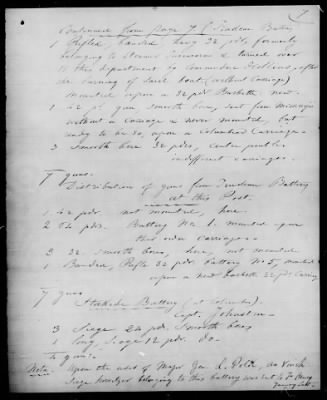 Continued from page 7 (Trudeau Battery
1 Rifled, banded, heavy 32 pdr, formerly
belonging to Steamer & turned over
to this department by Commodore Hollins, after
the burning of boat (without carriage)
mounted upon a 32 pdr Barbette new.
1 42 pdr gun Smooth bore, sent from
without a carriage & never mounted, but
ready to be so, upon a Columbiad Carriage.
3 Smooth bore 32 pdrs, center pintles
indifferent carriages.
7 guns.
Distribution of guns from Trudeau Battery
at this Post.
1 42 pdr. not mounted, here.
2 pdrs. Battery No. 1. mounted upon
their own Carriages
3 32. Smooth bores, here, not mounted
1 Banded, Rifle 32 pdr battery No 5, mounted
upon a new barbette 32 pdr Carriage
7 guns
Stockade Battery (at Columbus).
Capt. Johnston
3 Siege 24 pdr. Smooth bores
1 long, Siege 12 pdr. do.
4 guns.
Note. Upon the order of Major Gen. L. Polk, an 8 inch
Siege howitzer belonging to this battery was sent to Ft. Henry